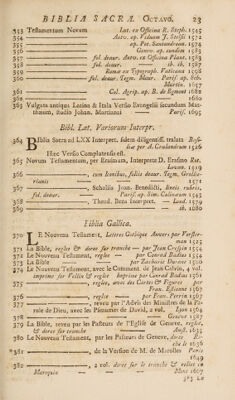 BIBLIA SACRA. OCTAVO. 23
353 Testamentum Novum Lat. ex Officina R. Steph. 1545
354 Antv. ap. Viduam J. Stelsii 1572
355 ap. Pet. Santandreum. 1574
356 Genev. ap. eundem 1583
357 sol. deaur. Antv. ex Officina Plant. 1583
358 sol. deaur. ib. 1587
359 Romæ ex Typograph. Vaticana 1598
360 sol. deaur. Tegm. Maur. Paris. ap. Seb. Martin. 1657
361 Col. Agrip. ap. B. de Egmont 1682
362
363 Vulgata antiqua Latina & Itala Versio Evangelii secundum Matthæum, studio Johan. Martianæi Paris. 1695
Bibl. Lat. Variorum Interpr.
364 Biblia Sacra ad LXX Interpret. fidem diligentiss. tralata Basileæ per A. Cratandrum 1526
Hæc Versio Complutensis est.
365 Novum Testamentum, per Erasmum, Interprete D. Erasmo Rot. Lovan. 1549
366 cum Iconibus, foliis deaur. Tegm. Grolierianis 1571
367 Scholiis Joan. Benedicti, lineis rubris, fol. deaur. Paris. ap. Sim. Colinæum 1543
368 Theod. Beza Interpret. Lond. 1579
369 ib. 1680
Biblia Gallica.
370 LE Nouveau Testament, Lettres Gothique Anvers par Vorsterman 1523
371 La Bible, reglée & dorée sur tranche par Jean Cresp 1554
372 Le Nouveau Testament, reglée par Conrad Badius 1554
373 La Bible par Zacharie Durant 1566
374 Le Nouveau Testament, avec le Comment. de Jean Calvin, 2 vol. imprimé sur Velin & reglée imprimé par Conrad Badius 1561
375 reglée, avec des Cartes & Figures par Fran. Estienne 1567
376 reglée par Fran. Perrin 1567
377 revu par l'Adris des Ministres de la Parole de Dieu, avec les Pseaumes de David, 2 vol. Lyon
378 Geneve 1587
379 La Bible, revue par les Pasteurs de l'Eglise de Geneve, reglée, & dorée sur tranche Amst. 1635
380 Le Nouveau Testament, par les Pasteurs de Geneve, dorée. Elz. 1656
*381 de la Version de M. de Marolles Paris 1649
*382 2 vol. dorée sur tranche & relié en Maroquin Mons 1667